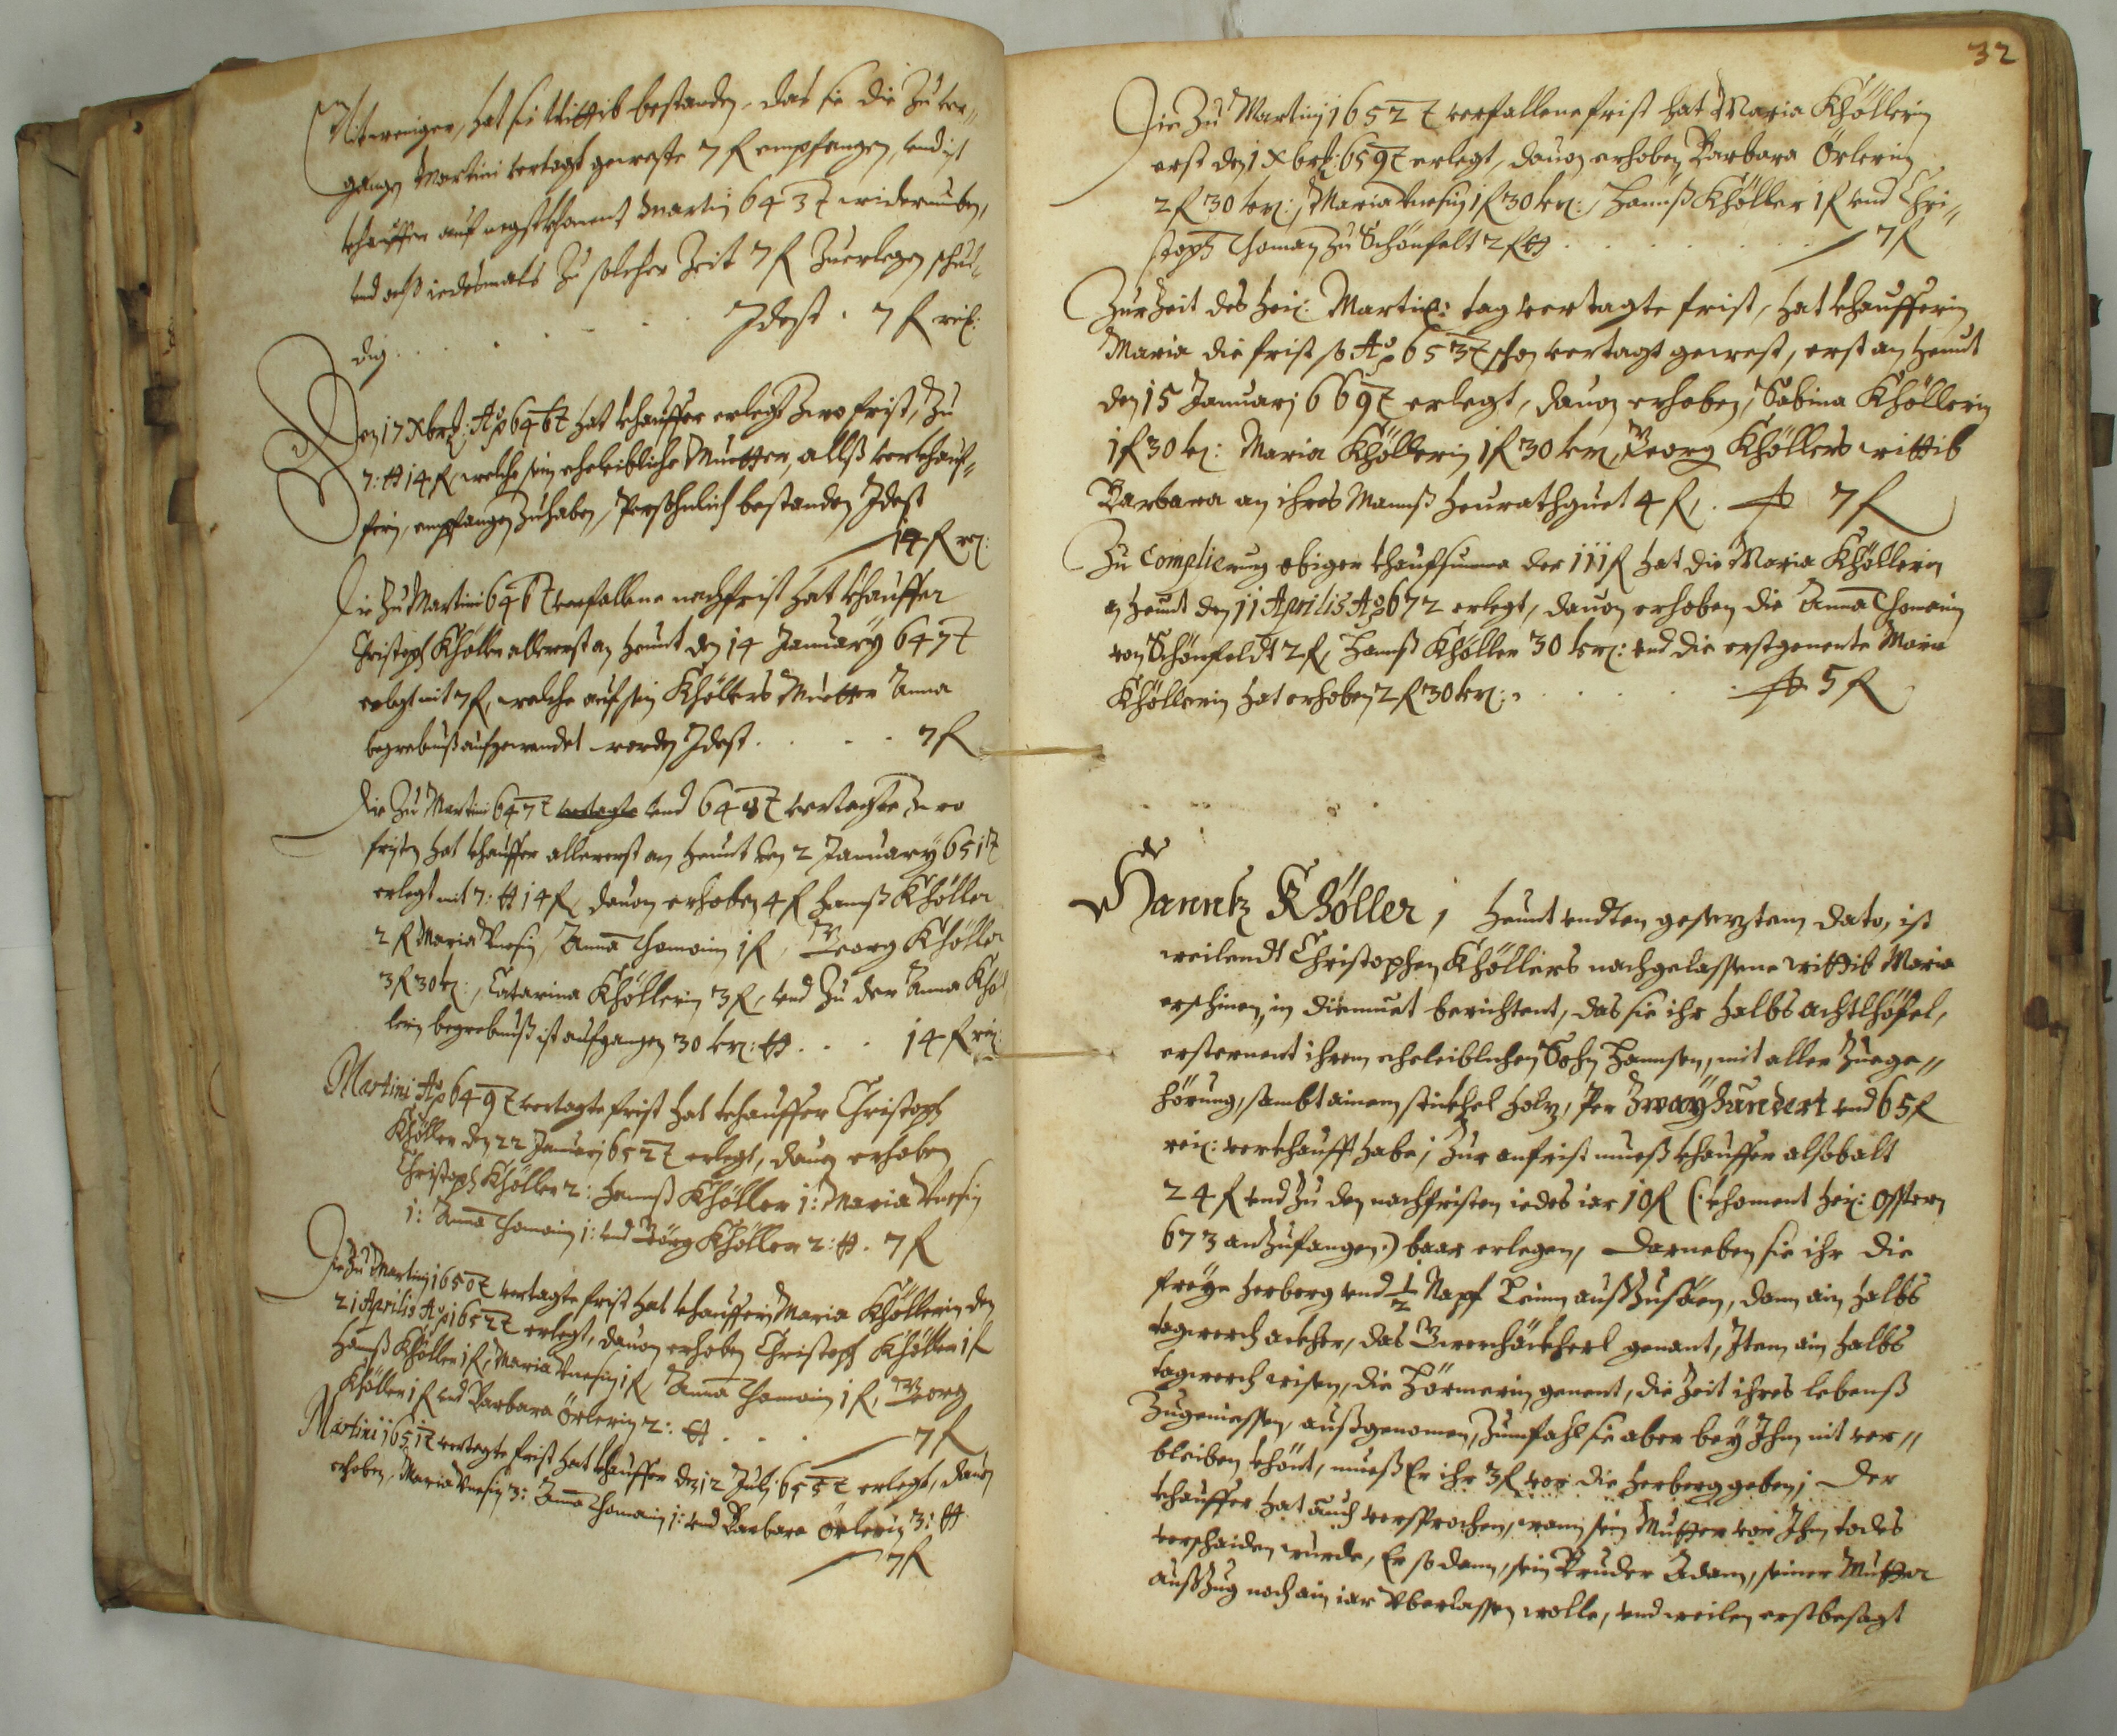 Nitweniger, hat sie Wittib bestanden, das sie die zu ver-,,
gangen Martini vertagt geweste 7 f empfangen, und ist
khauffer auf negstkhoment Martinj 643
und alß iedesmals zu solcher Zeit 7 f zuerlegen schul,,
dig . . . . . . Idest . 7 f rei:
Den 17 Xbris: Ao 646 hat khauffer erlegt zwo frist, zu
7: # 14 f, welche sein eheleibliche Muetter, allß verkhauf,,
ferin, empfangen zuhaben, Persohnlich bestanden Idest
14 f rei:
Die zu Martini 646 verfallene nachfrist hat khauffer
Christoph Khöller allererst an heunt den 14 January 647
erlegt mit 7 f, welche auf sein Khöllers Muetter Anna
begrebnuß aufgewendet worden Idest . . . . 7 f
Die zu Martini 647 vertagte und 648 vertagte zwo
fristen hat khauffer allererst an heunt den 2 January 651
erlegt mit 7: # 14 f, davon erhoben 4 f Hannß Khöller
2 f Maria, Anna Thomain 1 f, Georg Khöller
3 f 30 kr:, Catarina Khöllerin 3 f, und zu der Anna Khöl
lerin begrebnuß ist aufgangen 30 kr: # . . . 14 f rei:
Martini Ao 649 vertagte frist hat khauffer Christoph
Khöller den 22 Januarj 652 erlegt, davon erhoben
Christoph Khöller 2: Hannß Khöller 1: Maria
1: Anna Thomain 1: und Görg Khöller 2: # . 7 f
Die zu Martinj 1650 vertagte frist hat khaufferin Maria Khöllerin den
21 Aprilis Ao 1652 erlegt, davon erhoben Christoph Khöller 1 f
Hannß Khöller 1 f, Maria 1 f, Anna Thomain 1 f, Georg
Khöller 1 f und Barbara Örlerin 2: # . . . 7 f
Martini 1651 vertagte frist hat khauffer den 12 Julj 655 erlegt, davon
erhoben, Maria 3: Anna Thomain 1: und Barbara Örlerin 3: #
7 f
32
Die zu Martinj 1652 verfallene frist hat Maria Khöllerin
erst den 1 Xbris: 659 erlegt, davon erhoben, Barbara Örlerin
2 f 30 kr:, Maria 1 f 30 kr:, Hannß Khöller 1 f und Chri,,
stoph Thoman zu Schönfelt 2 f # . . . . . 7 f
Zur Zeit des Hei: Martin: tag vertagte frist, hat khaufferin
Maria die frist so Ao 653 schon vertagt gewest, erst an heunt
den 15 Januarj 669 erlegt, davon erhoben, Sabina Khöllerin
1 f 30 kr: Maria Khöllerin 1 f 30 kr, Georg Khöllers wittib
Barbara an ihres Mannß Heurathguet 4 f, . # 7 f
Zu Complierung obiger khaufsumma der 111 f hat die Maria Khöllerin
an heunt den 11 Aprilis Ao 672 erlegt, davon erhoben die Anna Thomain
von Schönfeldt 2 f, Hannß Khöller 30 kr: und die erstgenente Maria
Khöllerin hat erhoben 2 f 30 kr: . . . . # 5 f
Hannß Khöller, Heunt endten gesetztem dato, ist
weilendt Christophen Khöllers nachgelassene wittib Maria
erschinen, in diemuet berichtent, das sie ihr halbs achtlhöfel,
ersternent ihrem eheleiblichen Sohn Hannsen, mit aller zuege,,
hörung, sambt ainem stickhel holz, per Zwayhundert und 65 f
rei: verkhaufft habe, zur anfrist mueß khauffer alsobalt
24 f und zu den nachfristen iedes iar 10 f (: khoment Hei: Osstern
673 anzufangen :) baar erlegen, Darneben sie ihr die
freye herberg und 1/2 Napf Leinn außzusäen, dann ein halbs
tagwerch ackher, das Zwerchäckherl genant, Item ain halbs
tagwerch wisen, die Hörmerin genent, die Zeit ihres lebenß
zugeniessen, außgenomen, zumfahl sie aber bey Ihm nit ver,,
bleiben khönt, mueß Er ihr 3 f vor die herberg geben, Der
khauffer hat auch versprochen, wann sein Mutter vor Ihm todes
verschaiden wurde, Er so dann, sein Bruder Adam, seiner Mutter
außzug noch ain iar Überlassen wolle, und weilen erstbesagt